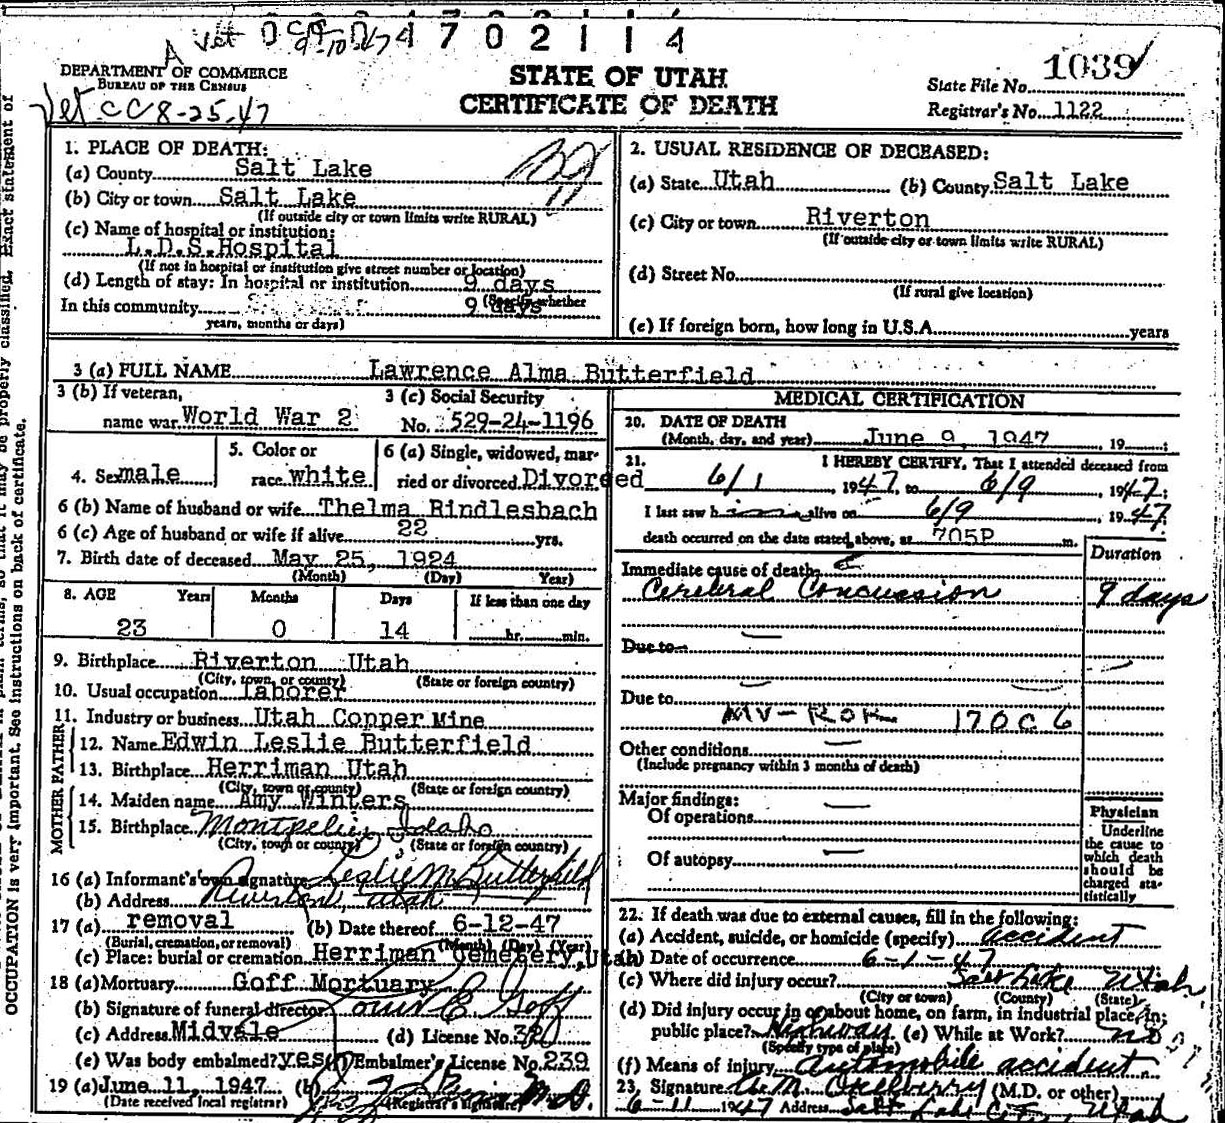 Vet 0 4 7 0 2 1 1 4
A
9-10-47
DEPARTMENT OF COMMERCE
BUREAU OF THE CENSUS
Vet CC 8-25-47
STATE OF UTAH
CERTIFICATE OF DEATH
State File No. 1039
Registrar's No. 1122
1. PLACE OF DEATH:
(a) County Salt Lake
(b) City or town Salt Lake
(If outside city or town limits write RURAL)
(c) Name of hospital or institution:
L.D.S. Hospital
(If not in hospital or institution give street number or location)
(d) Length of stay: In hospital or institution 9 days
(Specify whether
In this community 9 days
years, months or days)
2. USUAL RESIDENCE OF DECEASED:
(a) State Utah (b) County Salt Lake
(c) City or town Riverton
(If outside city or town limits write RURAL)
(d) Street No.
(If rural give location)
(e) If foreign born, how long in U.S.A. years
3 (a) FULL NAME Lawrence Alma Butterfield
3 (b) If veteran,
name war World War 2
3 (c) Social Security
No. 529-24-1196
4. Sex male
5. Color or
race white
6 (a) Single, widowed, mar-
ried or divorced Divorced
6 (b) Name of husband or wife Thelma Rindlesbach
6 (c) Age of husband or wife if alive 22 yrs.
7. Birth date of deceased May 25, 1924
(Month) (Day) Year)
8. AGE Years Months Days If less than one day
23 0 14 hr. min.
9. Birthplace Riverton Utah
(City, town, or county) (State or foreign country)
10. Usual occupation laborer
11. Industry or business Utah Copper Mine
FATHER
12. Name Edwin Leslie Butterfield
13. Birthplace Herriman Utah
(City, town or county) (State or foreign country)
MOTHER
14. Maiden name Amy Winters
15. Birthplace Montpelier Idaho
(City, town or county) (State or foreign country)
16 (a) Informant's own signature Leslie M Butterfield
(b) Address Riverton, Utah
17 (a) removal (b) Date thereof 6-12-47
(Burial, cremation, or removal) (Month) (Day) (Year)
(c) Place: burial or cremation Herriman Cemetery, Utah
18 (a) Mortuary Goff Mortuary
(b) Signature of funeral director Louis E Goff
(c) Address Midvale (d) License No.
(e) Was body embalmed? yes (f) Embalmer's License No. 239
19 (a) June 11, 1947 (b) M.D.
(Date received local registrar) (Registrar's signature)
MEDICAL CERTIFICATION
20. DATE OF DEATH
(Month, day, and year) June 9, 1947, 19 ;
21. I HEREBY CERTIFY, That I attended deceased from
6/1, 1947, to 6/9, 1947;
I last saw him alive on 6/9, 1947
death occurred on the date stated above, at 705P m.
Duration
Immediate cause of death
Cerebral Concussion 9 days
Due to
Due to
MV-ROR 170C6
Other conditions
(Include pregnancy within 3 months of death)
Major findings:
Of operations
Of autopsy
Physician
Underline
the cause to
which death
should be
charged sta-
tistically
22. If death was due to external causes, fill in the following:
(a) Accident, suicide, or homicide (specify) accident
(b) Date of occurrence 6-1-47
(c) Where did injury occur? Salt Lake Utah
(City or town) (County) (State)
(d) Did injury occur in or about home, on farm, in industrial place, in
public place? Highway (e) While at Work? no
(Specify type of place)
(f) Means of injury Automobile accident
23. Signature (M.D. or other)
6-11 1947 Address Salt Lake City, Utah
Exact statement of
properly classified.
plain terms, so that it may be
OCCUPATION is very important. See instructions on back of certificate.